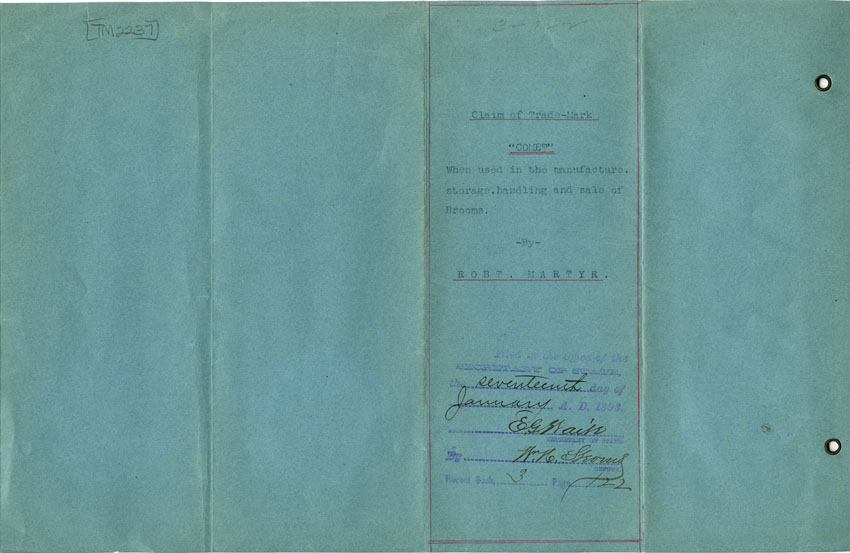 [TM2237]
Claim of Trade-Mark
"COMET"
When used in the manufacture,
storage, handling and sale of
Brooms.
-By-
ROBT. MARTYR.
Filed in the Office of the
SECRETARY OF STATE,
the seventeenth day of
January A. D. 1893.
E G Waite
SECRETARY OF STATE
By Wm. H.
DEPUTY
Record Book 3 Page 122